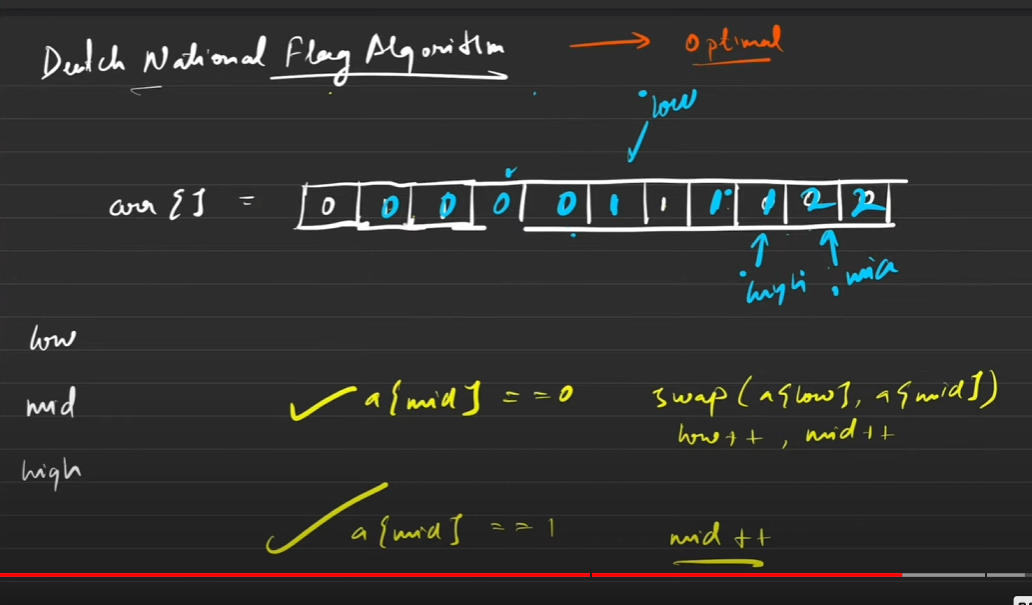 Dutch National Flag Algorithm → optimal
low
arr [] = 0 0 0 0 0 1 1 1 1 2 2
high mid
low
mid a[mid] == 0 swap (a[low], a[mid])
low++, mid++
high
a[mid] == 1 mid ++